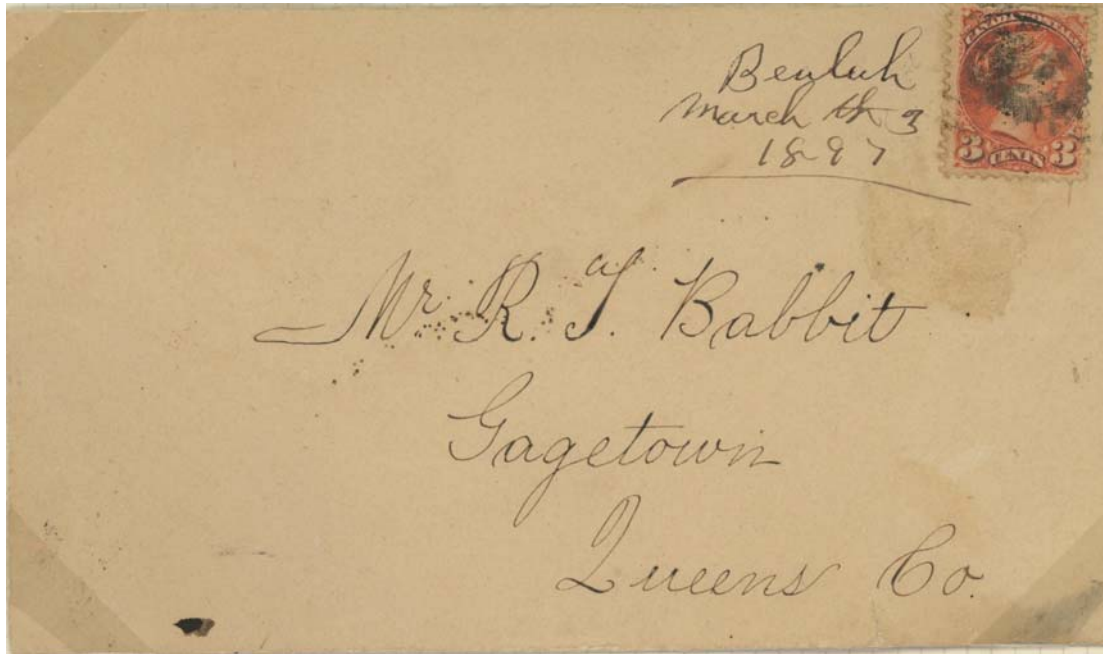 Beulah
March th 3
1897
CANADA POSTAGE
3 CENTS 3
Mr. R. T. Babbit
Gagetown
Queens Co.